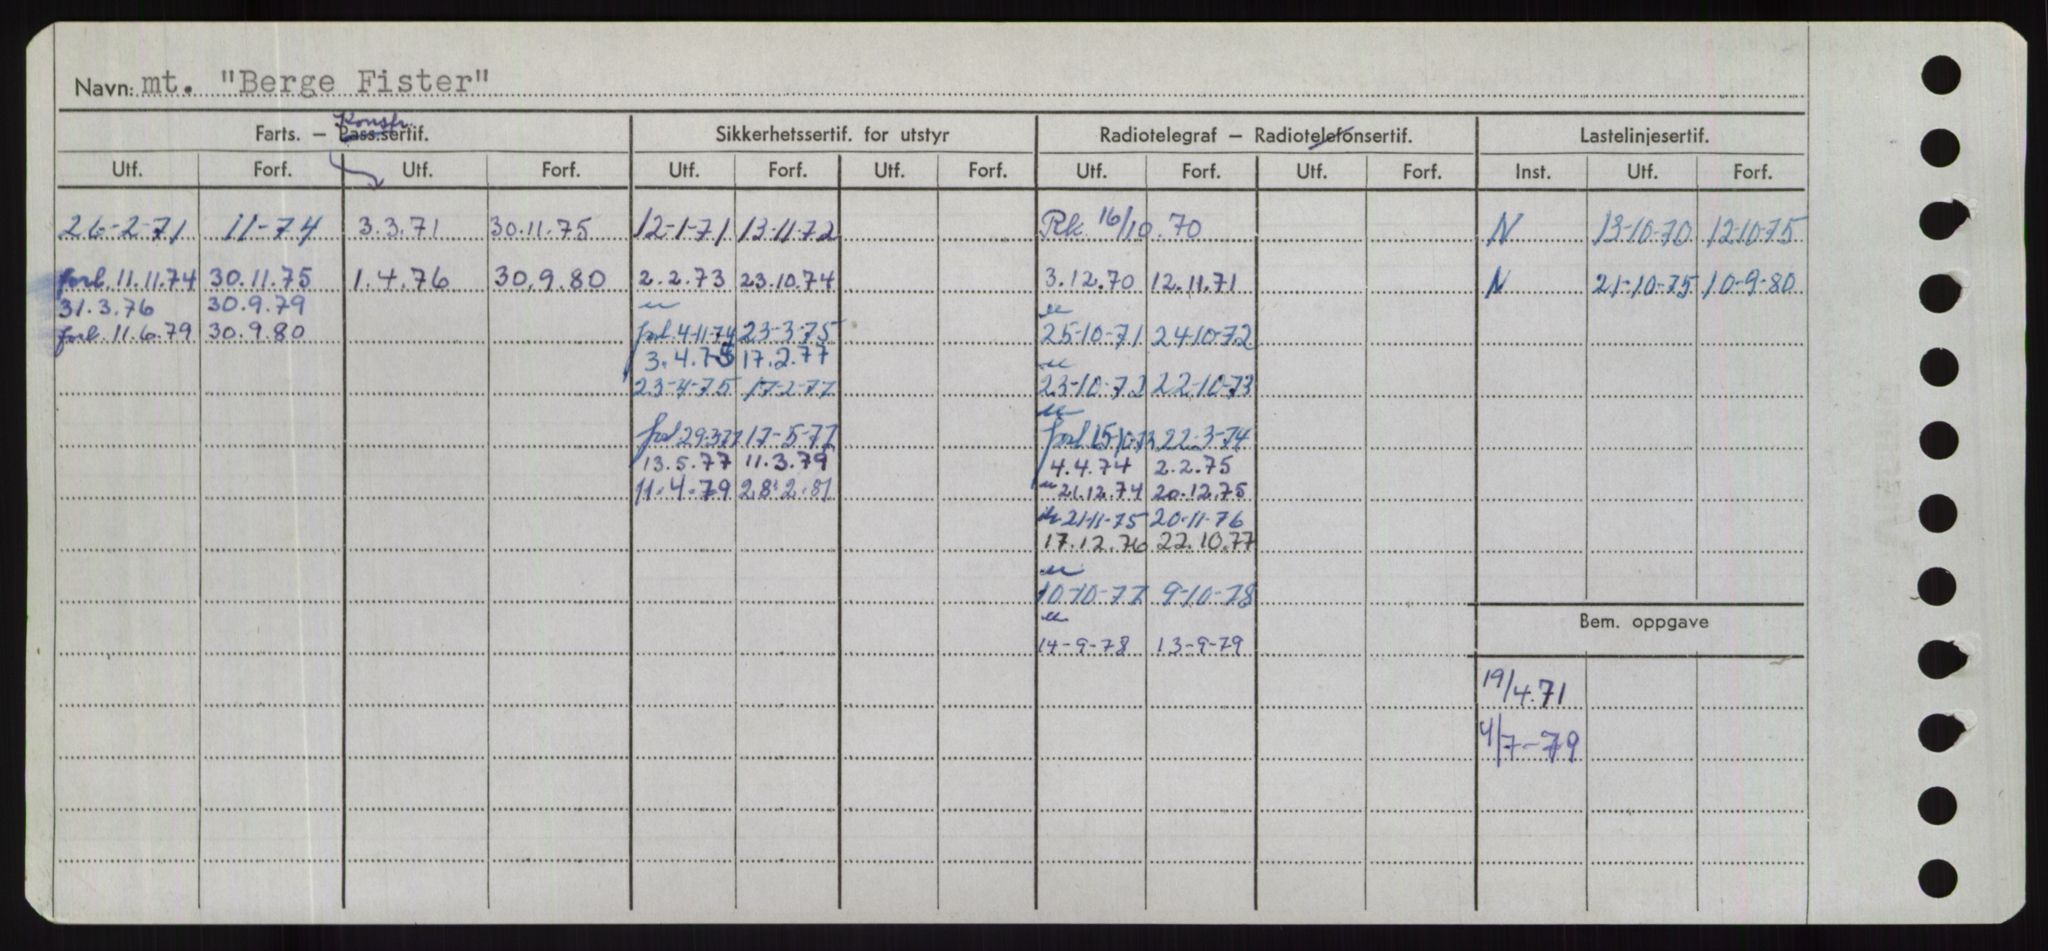 Navn: mt. "Berge Fister"
Konstr.
Farts. – Pass.sertif. Sikkerhetssertif. for utstyr Radiotelegraf – Radiotelefonsertif. Lastelinjesertif.
Utf. Forf. Utf. Forf. Utf. Forf. Utf. Forf. Utf. Forf. Utf. Forf. Inst. Utf. Forf.
26-2-71 11-74 3.3.71 30.11.75 12-1-71 13-11-72 Rk. 16/10.70 N 13-10-70 12-10-75
forl. 11.11.74 30.11.75 1.4.76 30.9.80 2.2.73 23.10.74 3.12.70 12.11.71 N 21-10-75 10-9-80
31.3.76 30.9.79
forl. 11.6.79 30.9.80 forl. 4-11-74 23-3-75 25-10-71 24-10-72
3.4.75 17.2.77
23-4-75 17-2-77 23-10-72 22-10-73
forl 29.3.77 17-5-77 forl 15-10-73 22-3-74
13.5.77 11.3.79 4.4.74 2.2.75
11.4.79 28.2.81 21.12.74 20.12.75
21-11-75 20-11-76
17.12.76 22.10.77
10-10-77 9-10-78
Bem. oppgave
14-9-78 13-9-79
19/4.71
4/7-79